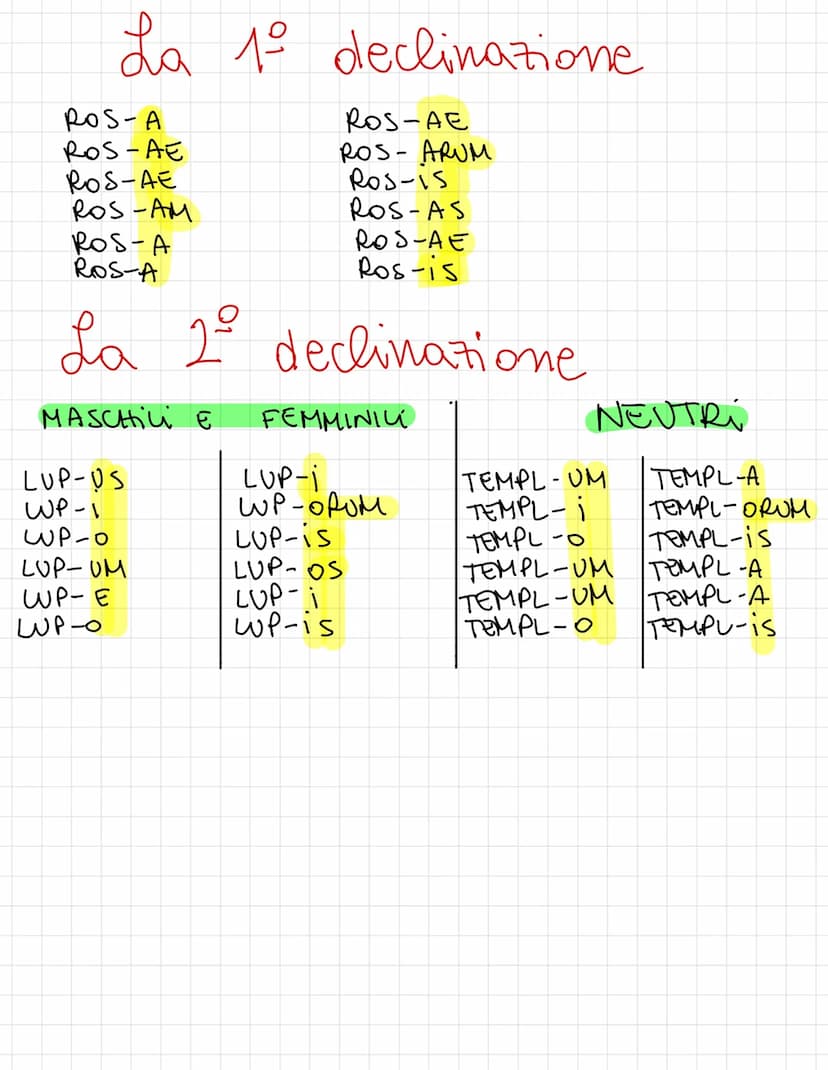 La 1º declinazione
ROS-A ROS-AE
ROS-AE ROS-ARUM
ROS-AE ROS-iS
ROS-AM ROS-AS
ROS-A ROS-AE
ROS-A ROS-iS
La 2º declinazione
MASCHiLi E FEMMINILi NEUTRi
LUP-US LUP-i TEMPL-UM TEMPL-A
LUP-i LUP-ORUM TEMPL-i TEMPL-ORUM
LUP-O LUP-iS TEMPL-O TEMPL-iS
LUP-UM LUP-OS TEMPL-UM TEMPL-A
LUP-E LUP-i TEMPL-UM TEMPL-A
LUP-O LUP-iS TEMPL-O TEMPL-iS